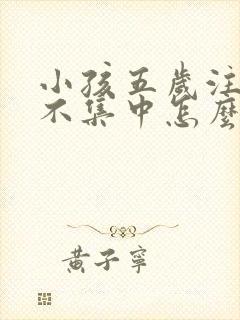 小孩五歲注
不集中怎麼
黃子寧